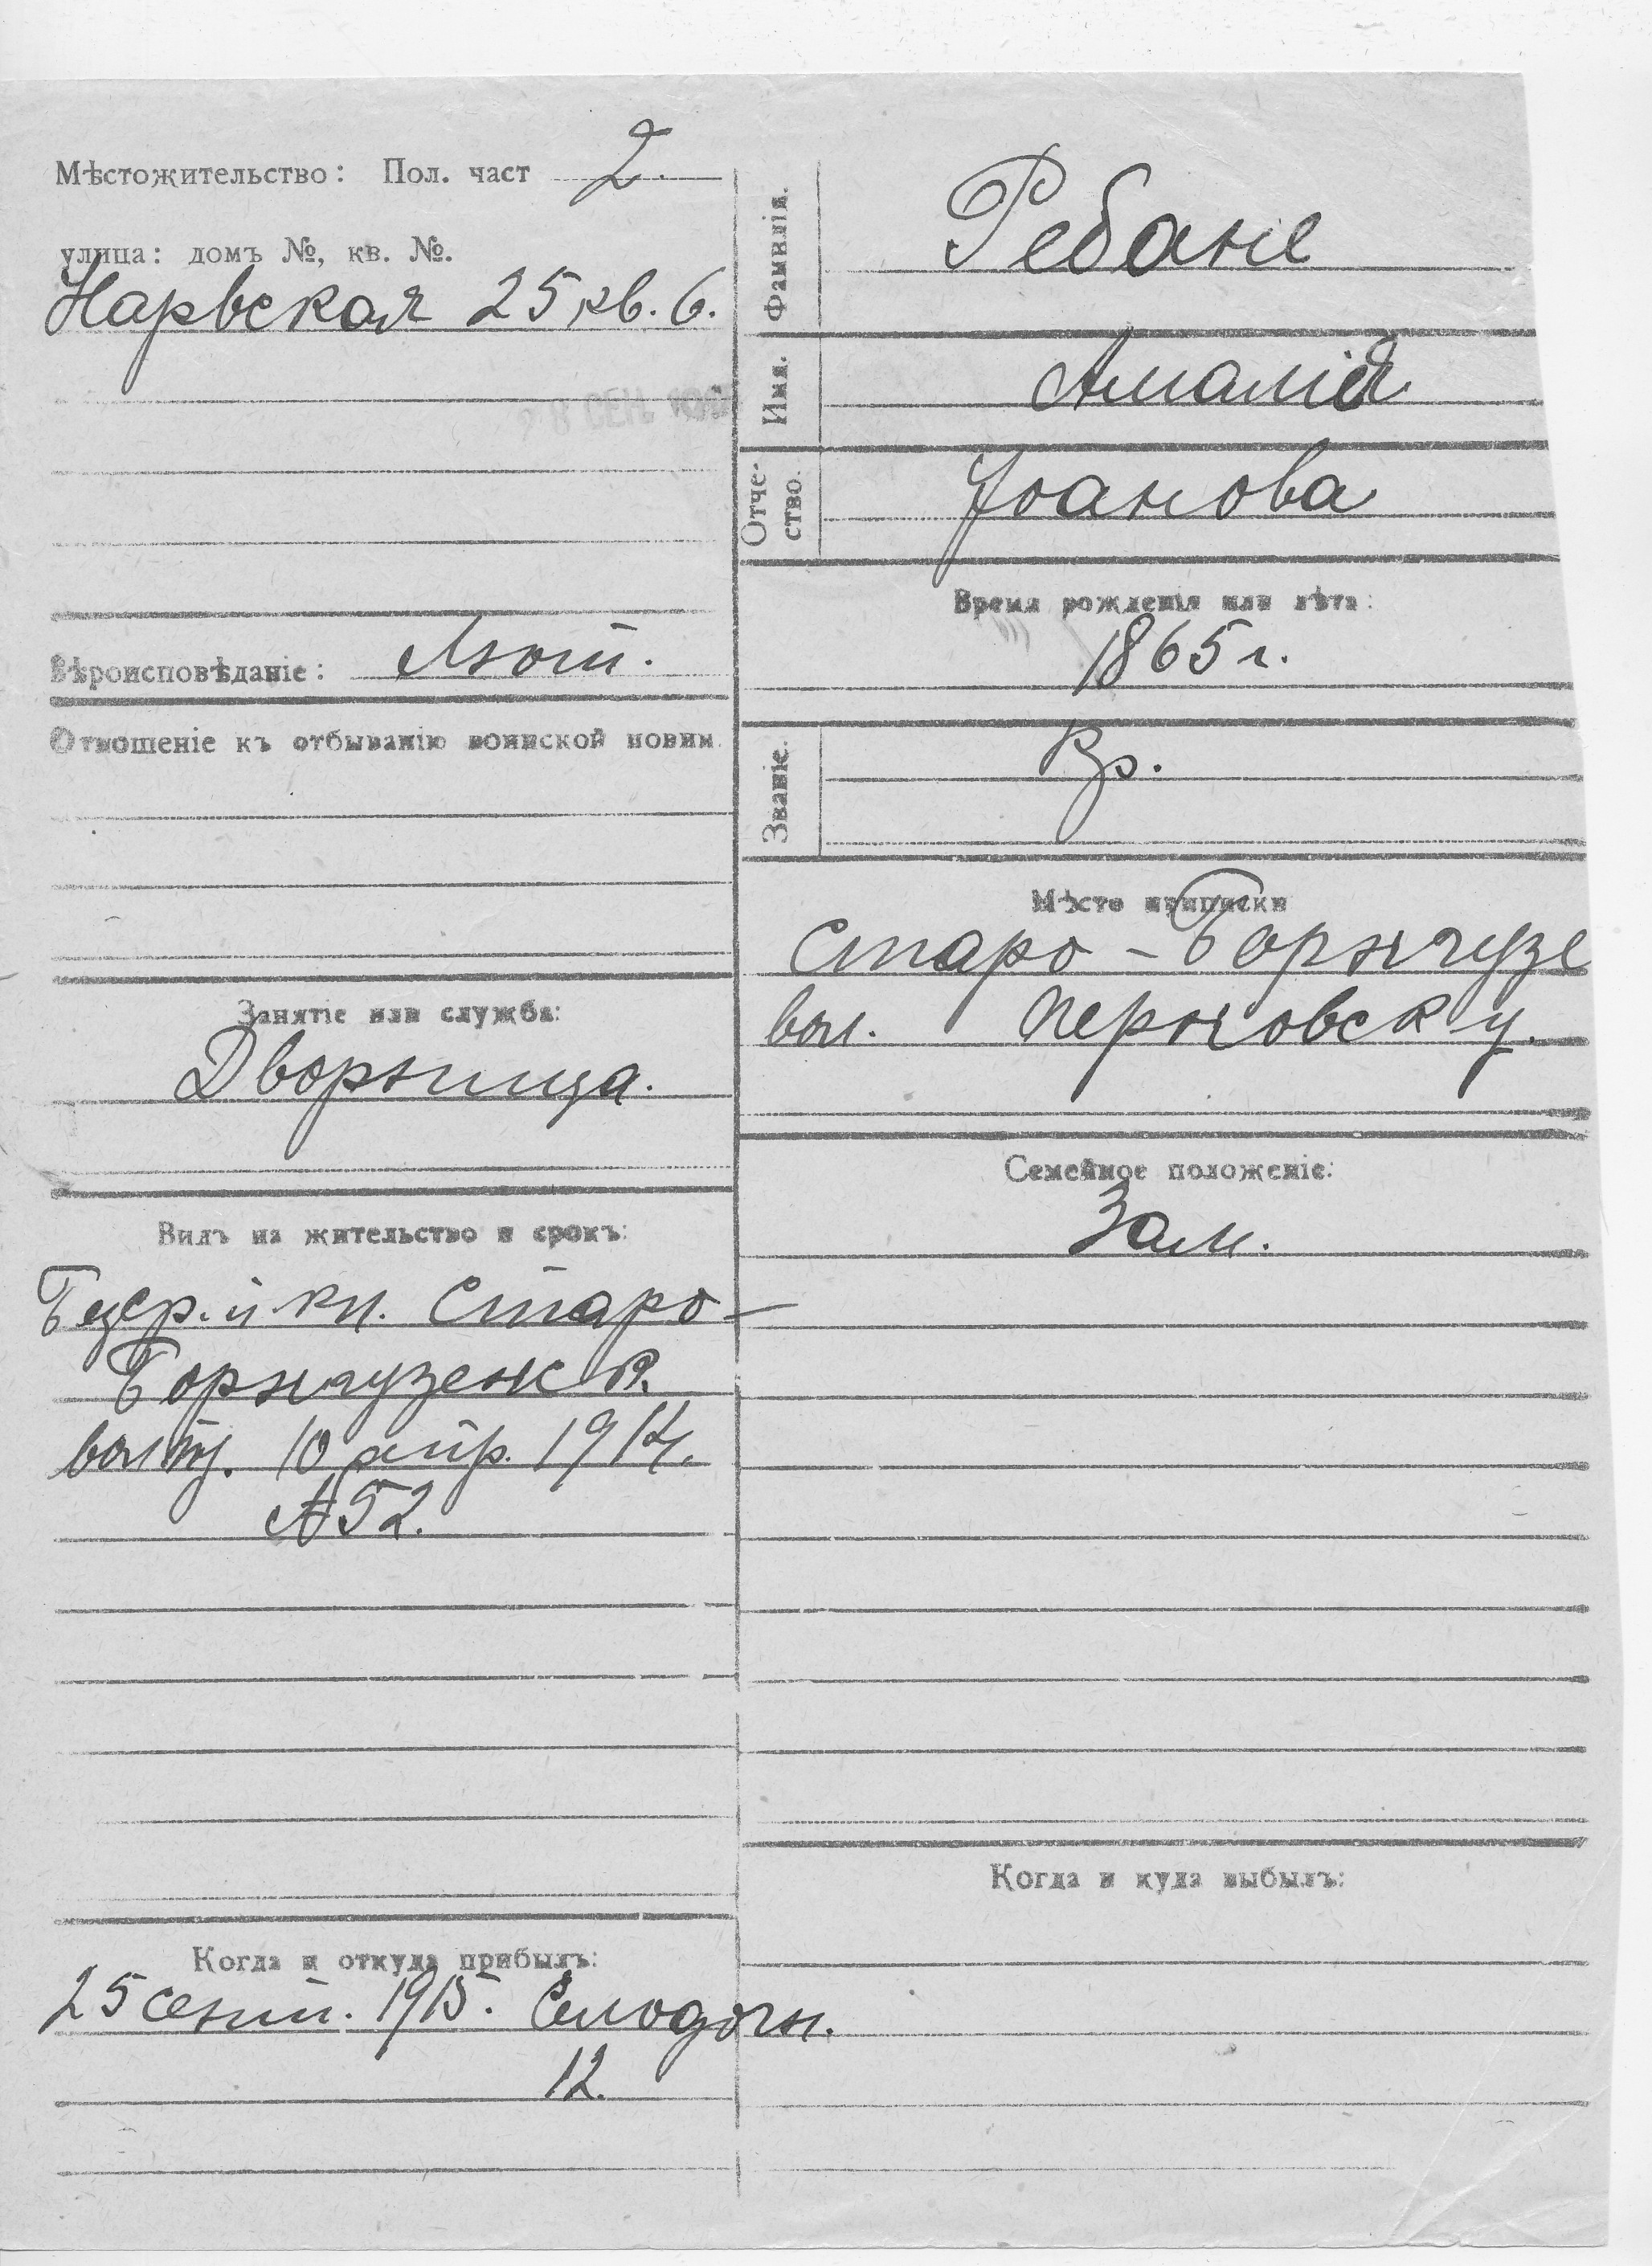 Мѣстожительство: Пол. част 2.
улица: домъ №, кв. №.
Нарвская 25 кв. 6.
Вѣроисповѣданіе: Лют.
Отношеніе къ отбыванію воинской повин.
Занятіе или служба:
Дворница.
Видъ на жительство и срокъ:
кн. Старо-
Борнгузенск.
10 апр. 1914.
№ 52.
Когда и откуда прибылъ:
25 сент. 1915.
12.
Фамилія.
Ребане
Имя.
Амалія
Отче-
ство.
Іоанова
Время рожденія или лѣта:
1865 г.
Званіе.
Кр.
Мѣсто приписки
Старо-Борнгузе
вол. Перновск у.
Семейное положеніе:
Зам.
Когда и куда выбылъ: